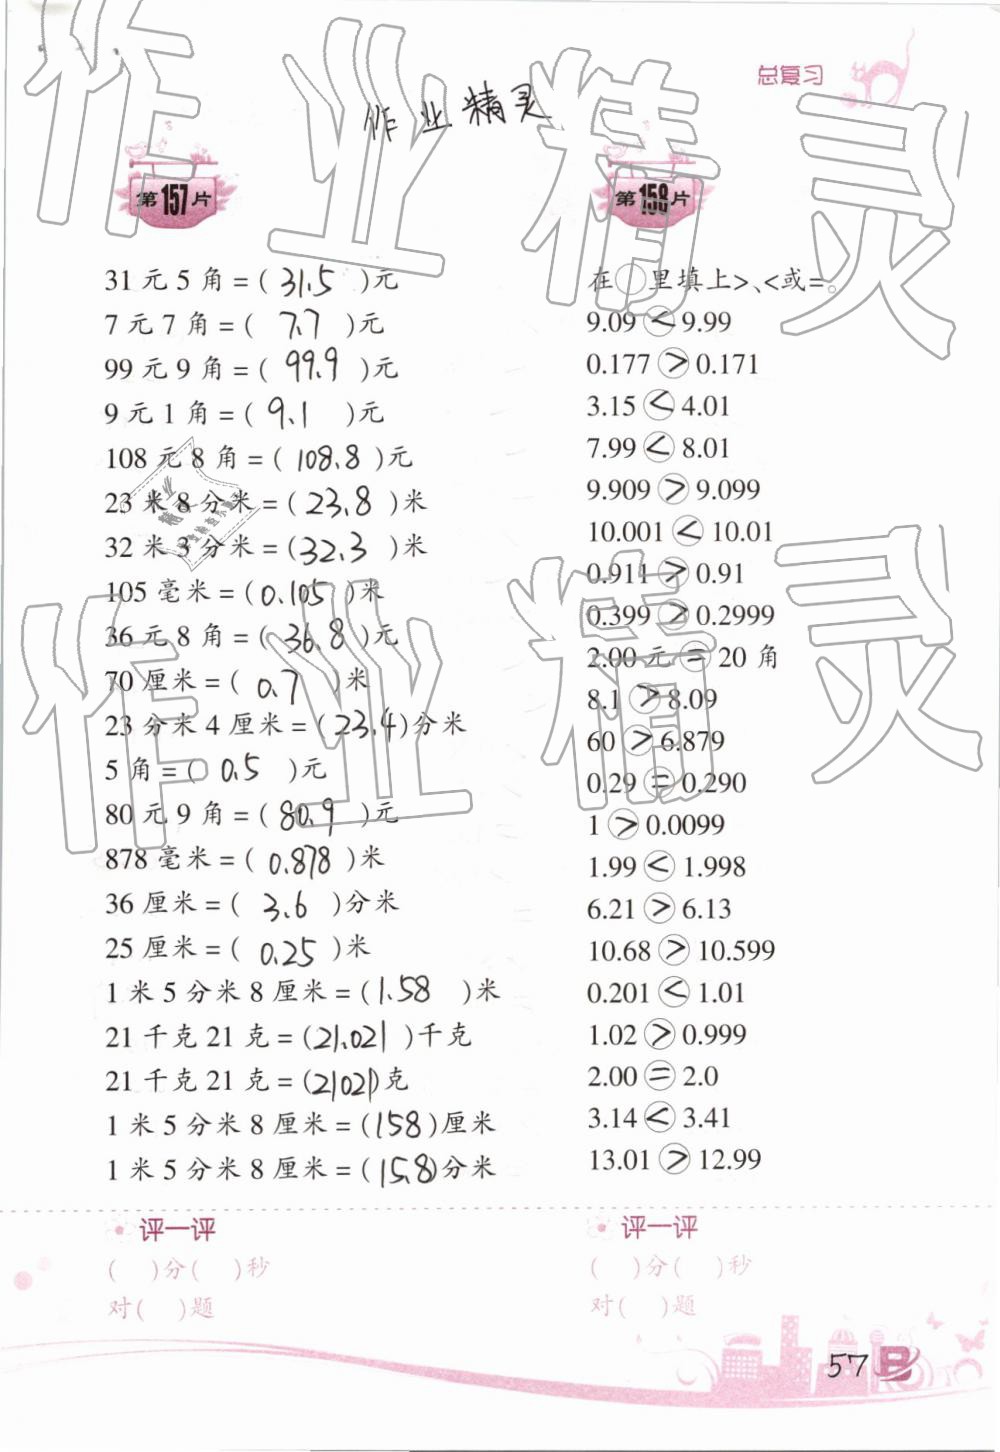 总复习
作业精灵
第157片
31元5角=(31.5)元
7元7角=(7.7)元
99元9角=(99.9)元
9元1角=(9.1)元
108元8角=(108.8)元
23米8分米=(23.8)米
32米3分米=(32.3)米
105毫米=(0.105)米
36元8角=(36.8)元
70厘米=(0.7)米
23分米4厘米=(23.4)分米
5角=(0.5)元
80元9角=(80.9)元
878毫米=(0.878)米
36厘米=(3.6)分米
25厘米=(0.25)米
1米5分米8厘米=(1.58)米
21千克21克=(21.021)千克
21千克21克=(21021)克
1米5分米8厘米=(158)厘米
1米5分米8厘米=(15.8)分米
评一评
( )分( )秒
对( )题
第158片
在○里填上>、<或=。
9.09<9.99
0.177>0.171
3.15<4.01
7.99<8.01
9.909>9.099
10.001<10.01
0.911>0.91
0.399>0.2999
2.00元=20角
8.1>8.09
60>6.879
0.29=0.290
1>0.0099
1.99<1.998
6.21>6.13
10.68>10.599
0.201<1.01
1.02>0.999
2.00=2.0
3.14<3.41
13.01>12.99
评一评
( )分( )秒
对( )题
57 B
作业精灵
作业精灵